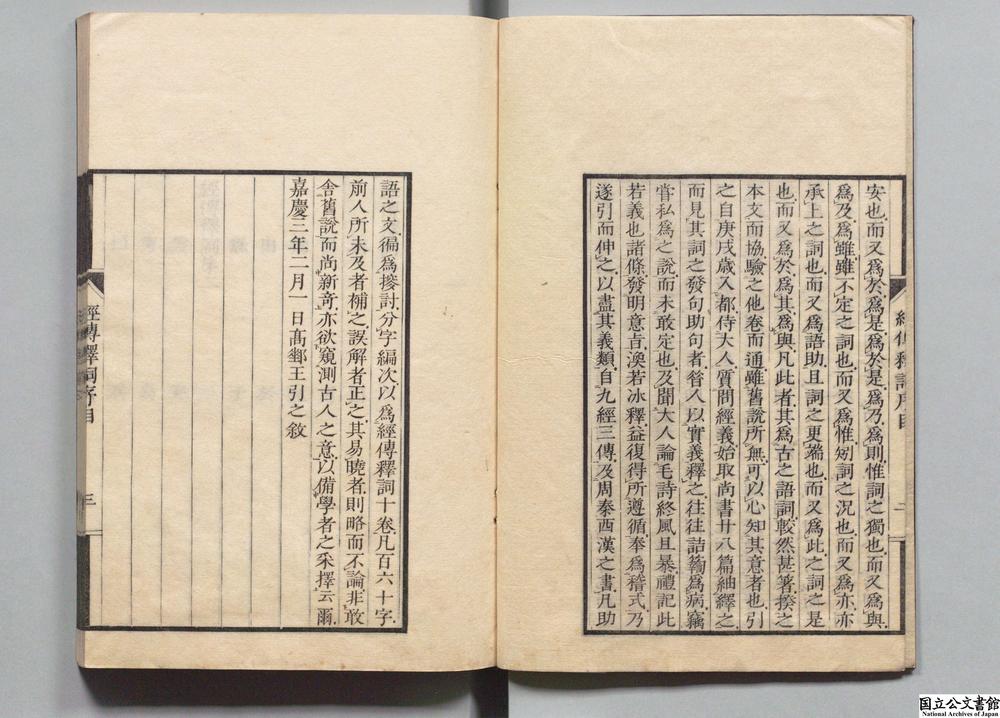 安也而又爲於爲是爲於是爲乃爲則惟詞之獨也而又爲與
爲及爲雖雖不定之詞也而又爲惟矧詞之況也而又爲亦亦
承上之詞也而又爲語助且詞之更端也而又爲此之詞之是
也而又爲於爲其爲與凡此者其爲古之語詞較然甚箸揆之
本文而協驗之他卷而通雖舊說所無可以心知其意者也引
之自庚戌歲入都侍大人質問經義始取尚書廿八篇紬繹之
而見其詞之發句助句者昔人以實義釋之往往詰𥷚爲病竊
嘗私爲之說而未敢定也及聞大人論毛詩終風且暴禮記此
若義也諸條發明意恉渙若冰釋益復得所遵循奉爲稽式乃
遂引而伸之以盡其義類自九經三傳及周秦西漢之書凡助
經傳釋詞序目
二
語之文徧爲搜討分字編次以爲經傳釋詞十卷凡百六十字
前人所未及者補之誤解者正之其易曉者則略而不論非敢
舍舊說而尚新奇亦欲窺測古人之意以備學者之采擇云爾
嘉慶三年二月一日高郵王引之敘
經傳釋詞序目
三
国立公文書館
National Archives of Japan